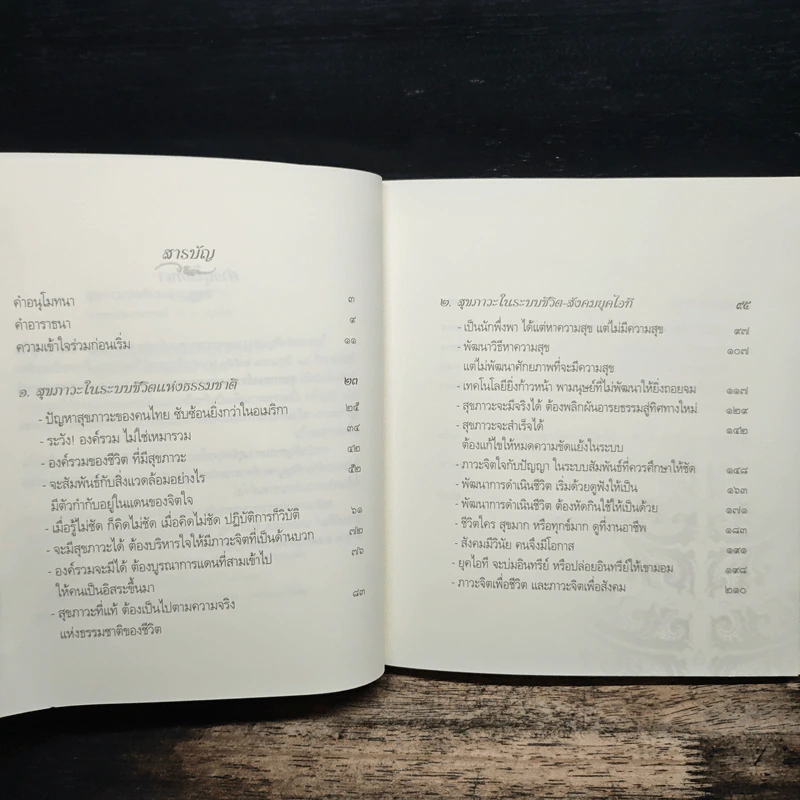 สารบัญ
คำอนุโมทนา ๓
คำอาราธนา ๙
ความเข้าใจร่วมก่อนเริ่ม ๑๑
๑. สุขภาวะในระบบชีวิตแห่งธรรมชาติ ๒๓
- ปัญหาสุขภาวะของคนไทย ซับซ้อนยิ่งกว่าในอเมริกา ๒๕
- ระวัง! องค์รวม ไม่ใช่เหมารวม ๓๔
- องค์รวมของชีวิต ที่มีสุขภาวะ ๔๒
- จะสัมพันธ์กับสิ่งแวดล้อมอย่างไร ๕๒
มีตัวกำกับอยู่ในแดนของจิตใจ
- เมื่อรู้ไม่ชัด ก็คิดไม่ชัด เมื่อคิดไม่ชัด ปฏิบัติการก็วิบัติ ๖๑
- จะมีสุขภาวะได้ ต้องบริหารใจให้มีภาวะจิตที่เป็นด้านบวก ๗๒
- องค์รวมจะมีได้ ต้องบูรณาการแดนที่สามเข้าไป ๗๖
ให้คนเป็นอิสระขึ้นมา
- สุขภาวะที่แท้ ต้องเป็นไปตามความจริง ๘๓
แห่งธรรมชาติของชีวิต
๒. สุขภาวะในระบบชีวิต-สังคมยุคไอที ๙๕
- เป็นนักพึ่งพา ได้แต่หาความสุข แต่ไม่มีความสุข ๙๗
- พัฒนาวิธีหาความสุข ๑๐๗
แต่ไม่พัฒนาศักยภาพที่จะมีความสุข
- เทคโนโลยียิ่งก้าวหน้า พามนุษย์ที่ไม่พัฒนาให้ยิ่งถอยจม ๑๑๗
- สุขภาวะจะมีจริงได้ ต้องพลิกผันอารยธรรมสู่ทิศทางใหม่ ๑๒๙
- สุขภาวะจะสำเร็จได้ ๑๔๒
ต้องแก้ไขให้หมดความขัดแย้งในระบบ
- ภาวะจิตใจกับปัญญา ในระบบสัมพันธ์ที่ควรศึกษาให้ชัด ๑๔๘
- พัฒนาการดำเนินชีวิต เริ่มด้วยดูฟังให้เป็น ๑๖๓
- พัฒนาการดำเนินชีวิต ต้องหัดกินใช้ให้เป็นด้วย ๑๗๑
- ชีวิตใคร สุขมาก หรือทุกข์มาก ดูที่งานอาชีพ ๑๘๓
- สังคมมีวินัย คนจึงมีโอกาส ๑๙๑
- ยุคไอที จะบ่มอินทรีย์ หรือปล่อยอินทรีย์ให้เขามอม ๑๙๘
- ภาวะจิตเพื่อชีวิต และภาวะจิตเพื่อสังคม ๒๑๐